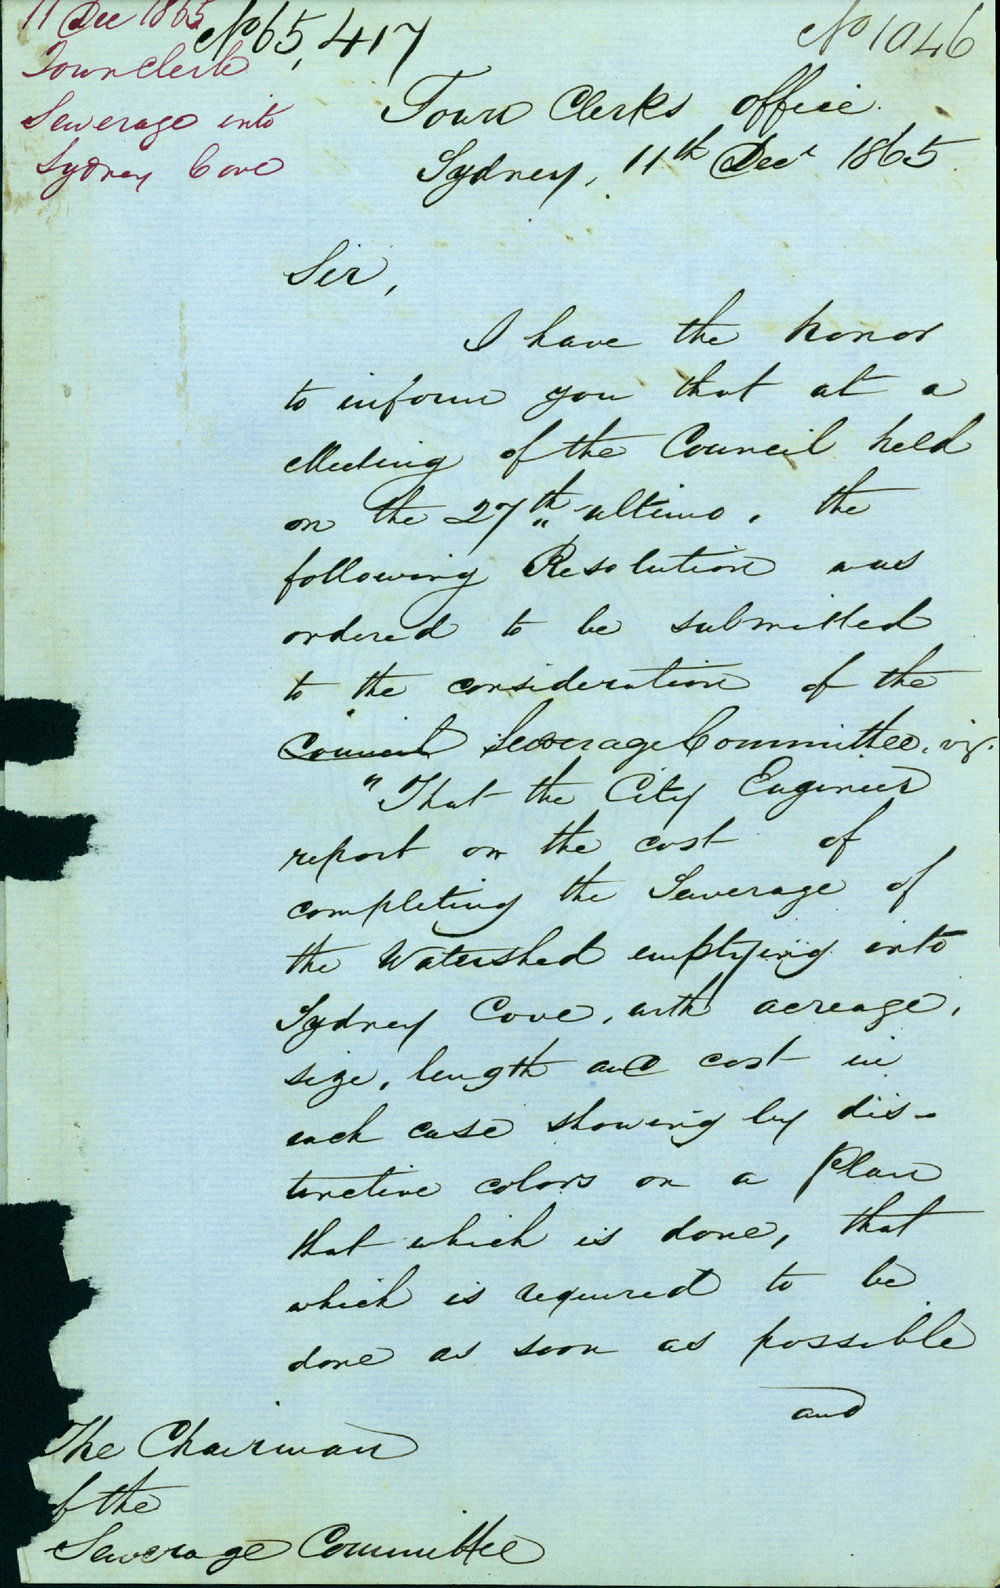 11 Dec 1865
Town Clerk
Sewerage into
Sydney Cove
No 65,417
No 1046
Town Clerks office
Sydney, 11th Decr 1865
Sir,
I have the honor
to inform you that at a
Meeting of the Council held
on the 27th ultimo, the
following Resolution was
ordered to be submitted
to the consideration of the
Council Sewerage Committee, viz.
"That the City Engineer
report on the cost of
completing the Sewerage of
the Watershed emptying into
Sydney Cove, with acreage,
size, length and cost in
each case showing by dis-
tinctive colors on a Plan
that which is done, that
which is required to be
done as soon as possible
and
The Chairman
of the
Sewerage Committee